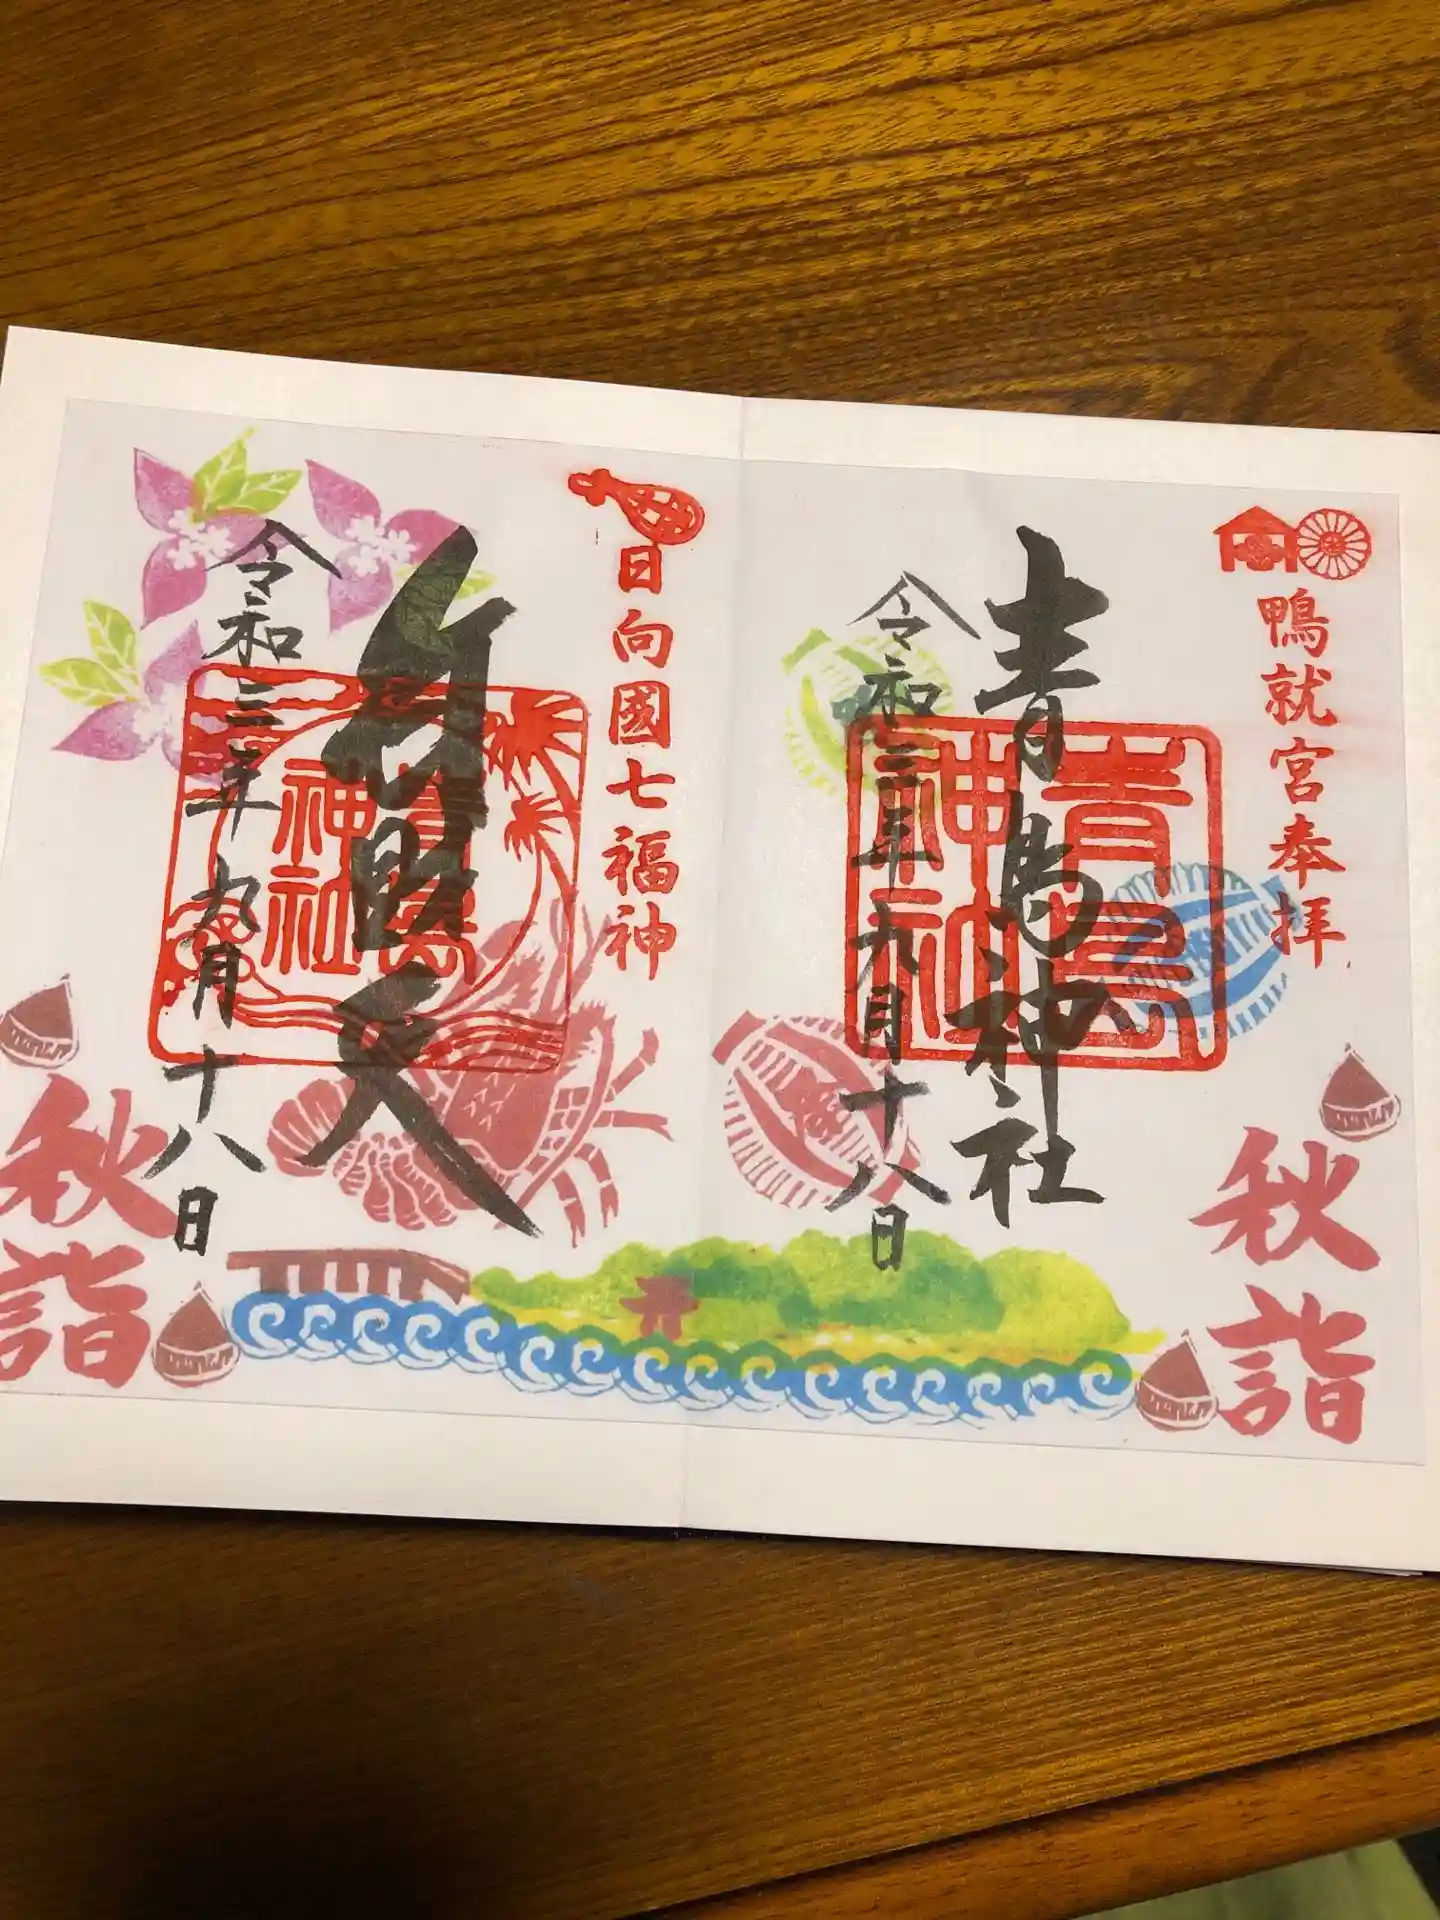 鴨就宮奉拝
青島神社
青島
神社
令和三年九月十八日
秋詣
日向國七福神
弁財天
青島
神社
令和三年九月十八日
秋詣